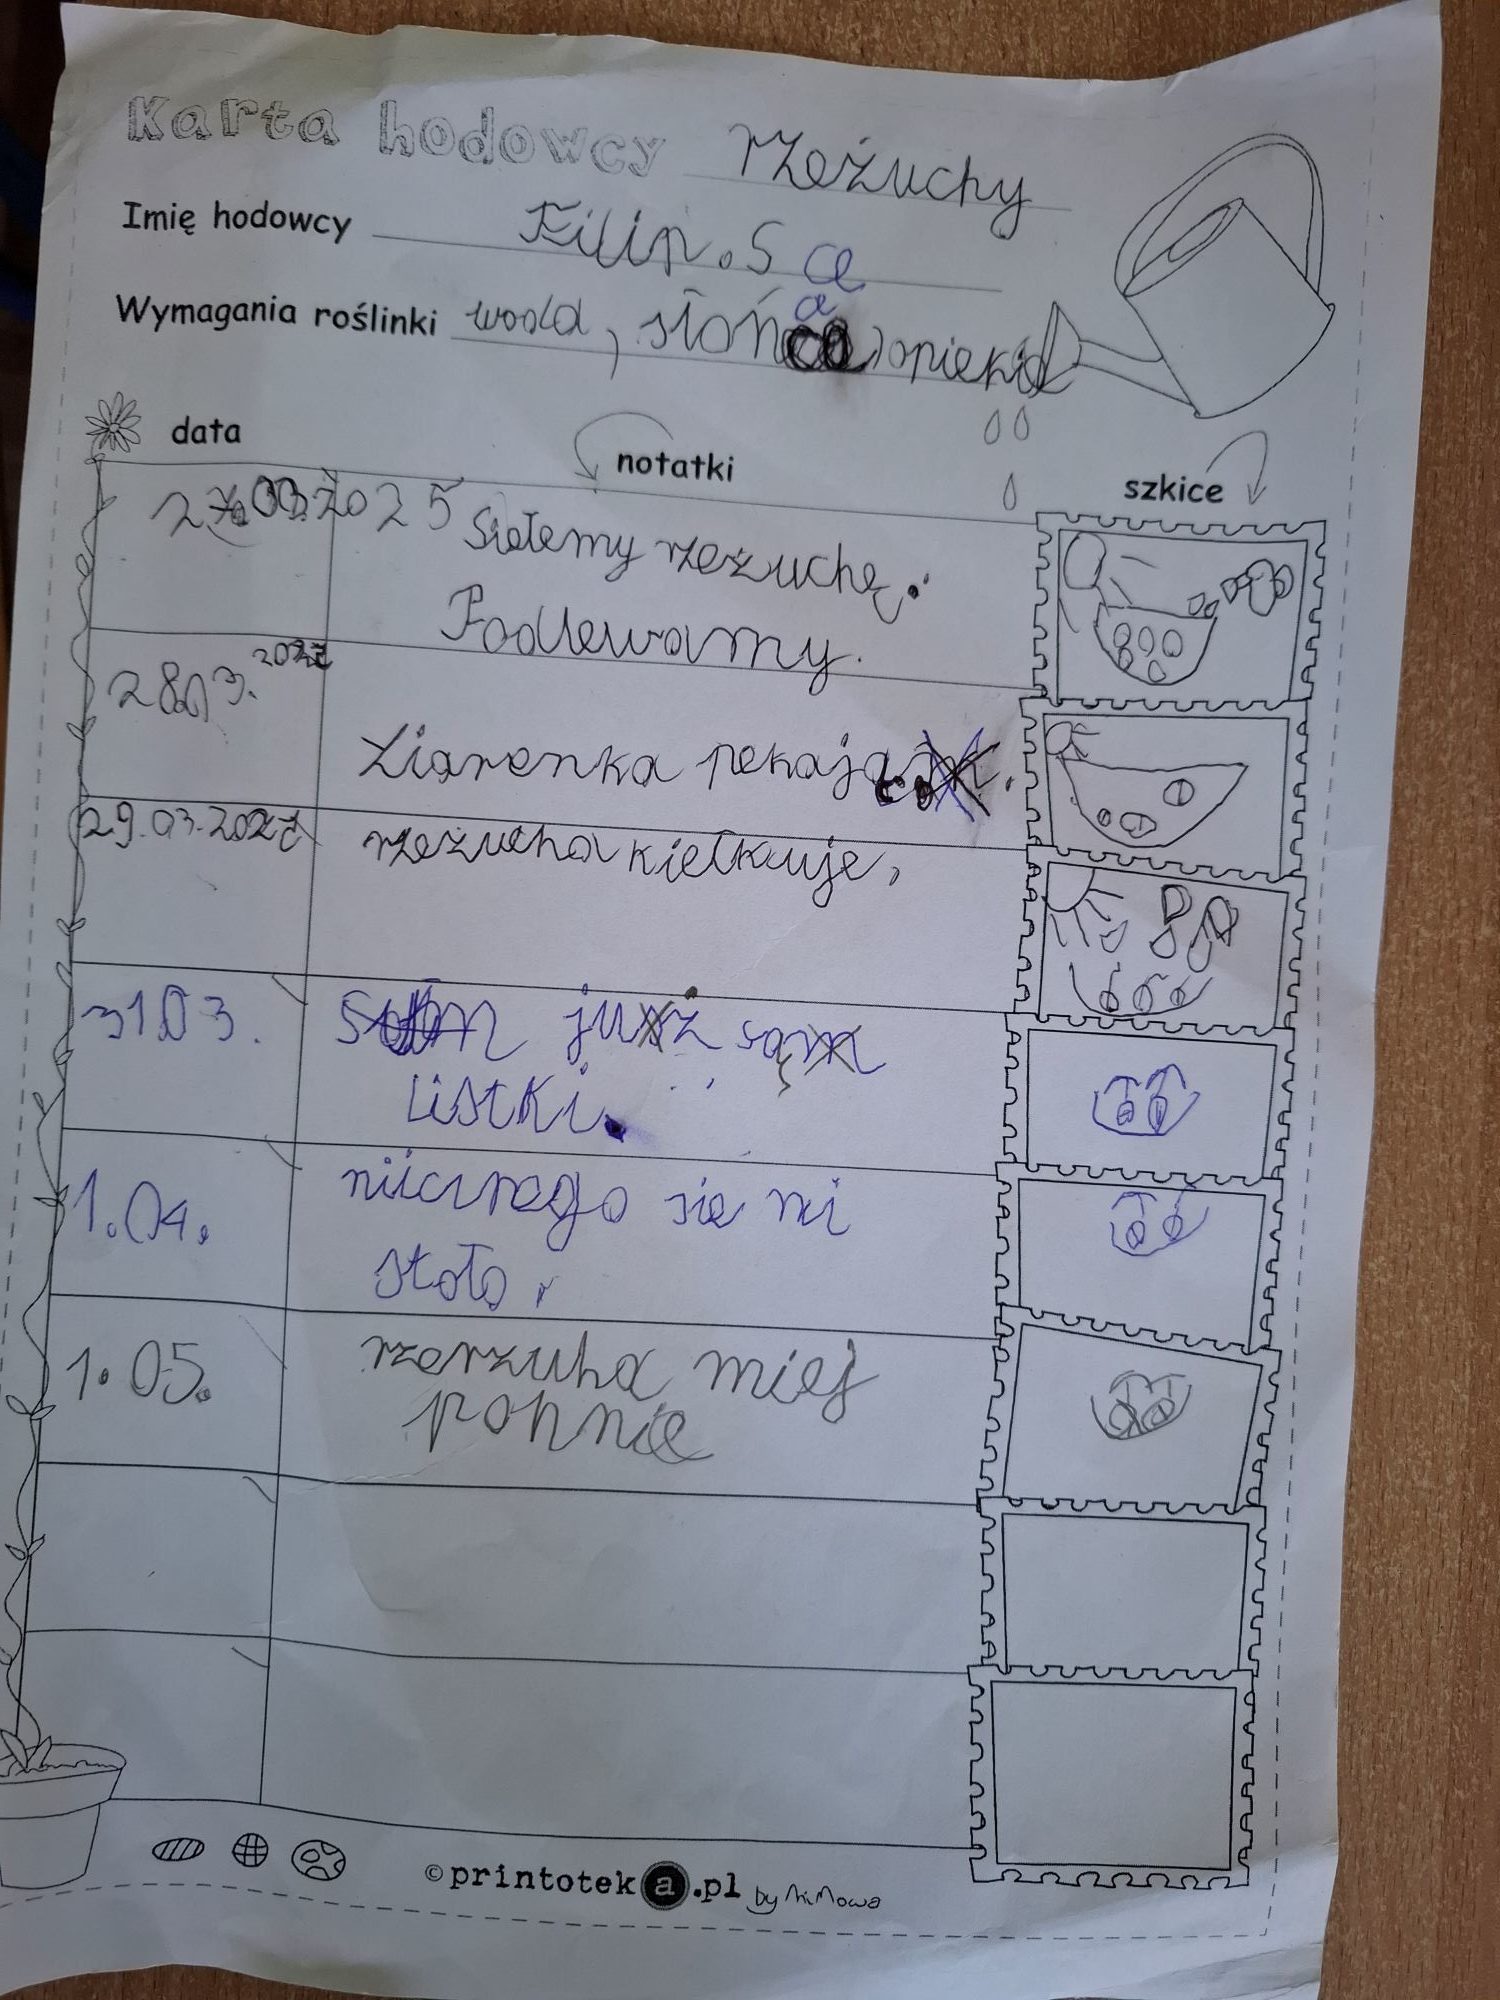 Karta hodowcy rzeżuchy
Imię hodowcy Filip.S
Wymagania roślinki woda, słońca, opieka
data notatki szkice
27.03.2025 Siełemy rzeżuchę.
Podlewamy.
28.03.2025
Ziarenka pękają.
29.03.2025 rzeżucha kiełkuje,
31.03. już są
listki.
1.04. niicznego się ni
stoło,
1.05. rzerzuha miej
pohnie
©printoteka.pl by NiNowa